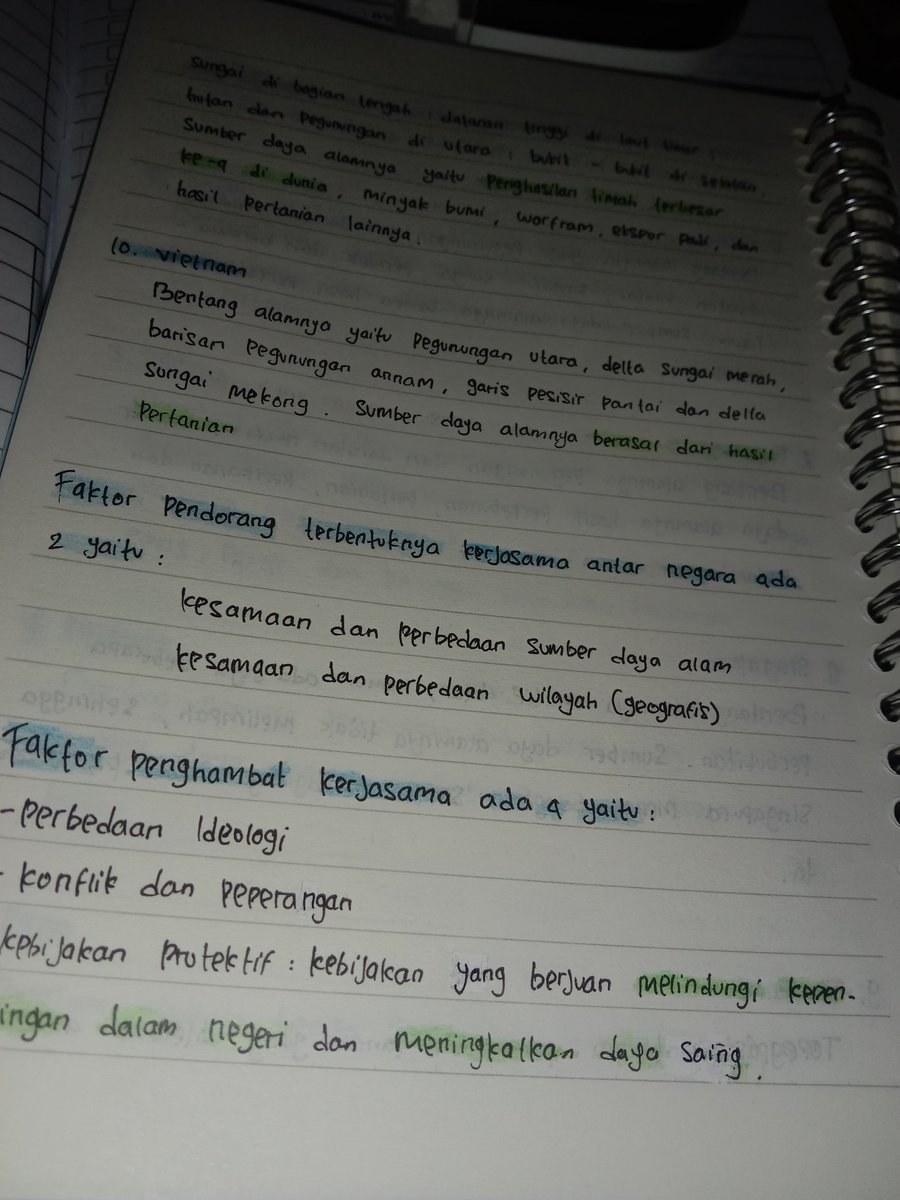 sungai di bagian tengah : dataran tinggi di laut timur ;
hutan dan pegunungan di utara ; bukit - bukit di selatan.
Sumber daya alamnya yaitu penghasilan timah terbesar
ke-4 di dunia, minyak bumi, worfram, ekspor padi, dan
hasil pertanian lainnya.
10. Vietnam
Bentang alamnya yaitu pegunungan utara, delta sungai merah,
barisan pegunungan annam, garis pesisir pantai dan delta
sungai mekong. Sumber daya alamnya berasal dari hasil
pertanian
Faktor pendorang terbentuknya kerjasama antar negara ada
2 yaitu :
kesamaan dan perbedaan sumber daya alam
kesamaan dan perbedaan wilayah (geografis)
Faktor penghambat kerjasama ada 4 yaitu :
- perbedaan Ideologi
- konflik dan peperangan
kebijakan protektif : kebijakan yang berjuan melindungi kepen-
ingan dalam negeri dan meningkatkan daya saing.